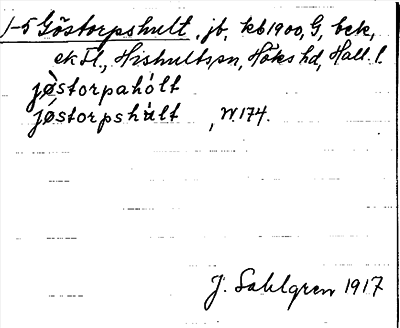 1-5 Göstorpshult, jb, kb 1900, G, bek,
ek Fl., Hishultssn, Höks hd, Hall. l.
jø̀storpahólt
jǿstorpshùlt , W. 174.
J. Sahlgren 1917